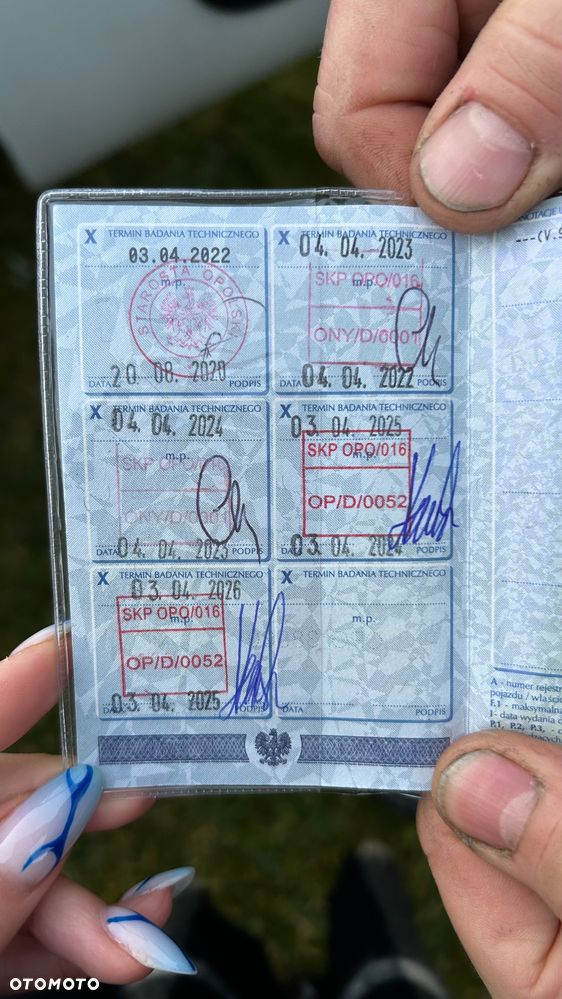 X TERMIN BADANIA TECHNICZNEGO
03.04.2022
m.p.
STAROSTA OPOLSKI
20 08. 2020
DATA PODPIS
X TERMIN BADANIA TECHNICZNEGO
04. 04. 2023
SKP OPO/016
m.p.
ONY/D/0001
04. 04. 2022
DATA PODPIS
X TERMIN BADANIA TECHNICZNEGO
04. 04. 2024
m.p.
SKP OPO/016
ONY/D/0001
04. 04. 2023
DATA PODPIS
X TERMIN BADANIA TECHNICZNEGO
03. 04. 2025
SKP OPO/016
m.p.
OP/D/0052
03. 04. 2024
DATA PODPIS
X TERMIN BADANIA TECHNICZNEGO
03. 04. 2026
SKP OPO/016
m.p.
OP/D/0052
03. 04. 2025
DATA PODPIS
X TERMIN BADANIA TECHNICZNEGO
m.p.
DATA PODPIS
---(V.9
A - numer rejestr
pojazdu / właści
F.1 - maksymalna
I- data wydania
P.1, P.2, P.3, -
OTOMOTO